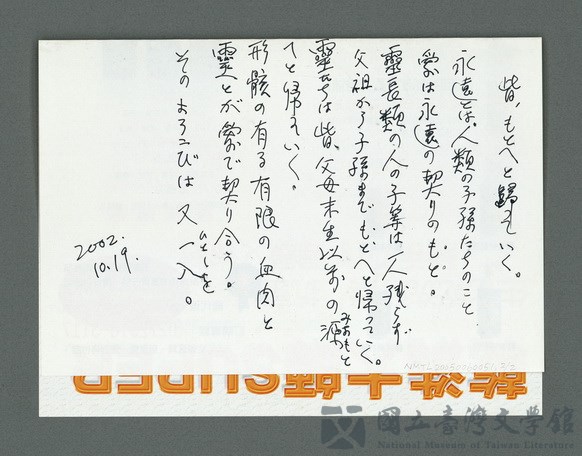 皆、もとへと歸っていく。
永遠とは、人類の子孫たちのこと
愛は永遠の契りのもと。
靈長類の人の子等は一人残らず
父祖から子孫まで、もとへと帰っていく。
靈たちは皆、父母未生以前の源
みなもと
へと帰っていく。
形骸の有る有限の血肉と
靈とが愛で契り合う。
そのよろこびは又一入。
ひとしお
2002.
10.19.
國立臺灣文學館
National Museum of Taiwan Literature